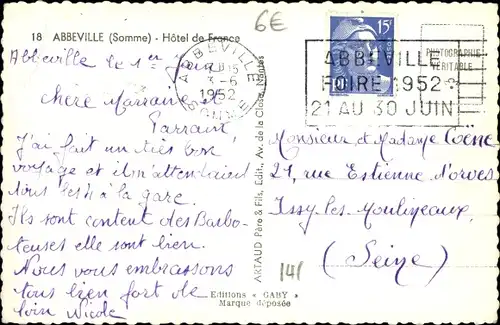 18 ABBEVILLE (Somme) - Hôtel de France
6€
Abbeville le 1er Juin
Chère Marraine et
Parrain,
J'ai fait un très bon
voyage et il m'attendaient
tous les 4 à la gare.
Ils sont content des Barbo-
teuses elle sont bien.
Nous vous embrassons
tous bien fort de
loin Nicole
Editions « GABY »
Marque déposée
ARTAUD Père & Fils, Edit., Av. de la Close, Nantes
ABBEVILLE
3-6
1952
SOMME
15F
PHOTOGRAPHIE
VÉRITABLE
ABBEVILLE
FOIRE 1952
21 AU 30 JUIN
Monsieur et Madame
27, rue Estienne d'Orves
Issy-les-Moulineaux
(Seine)
141